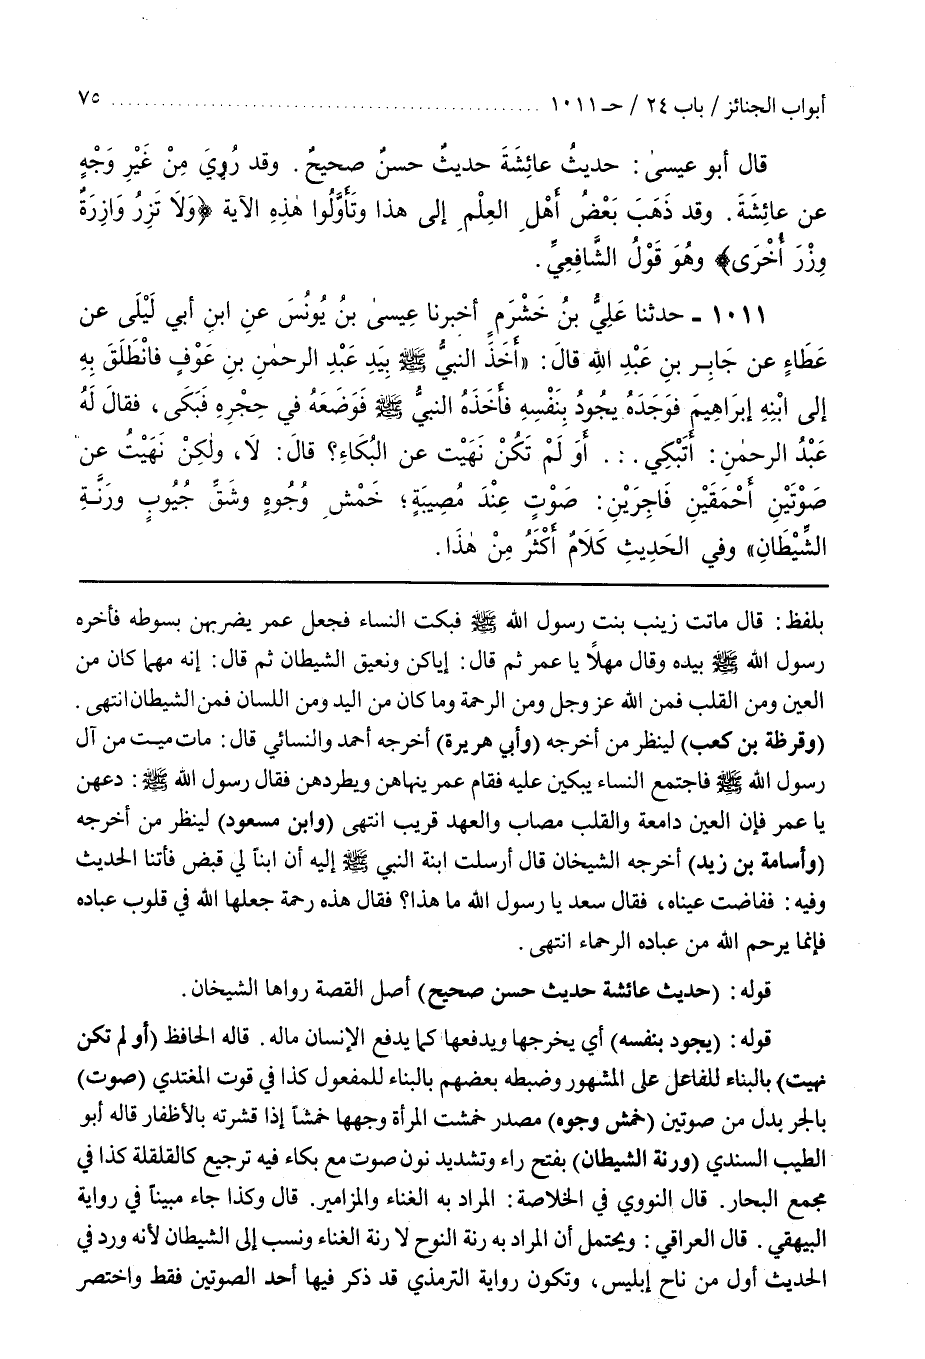 أبواب الجنائز / باب ٢٤ / حـ ١٠١١ ............................................................ ٧٥
قال أبو عيسىٰ: حديثُ عائِشَةَ حديثٌ حسنٌ صحيحٌ. وقد رُوِيَ مِنْ غَيْرِ وَجْهٍ
عن عائِشَةَ. وقد ذَهَبَ بَعْضُ أَهْلِ العِلْمِ إلى هذا وتَأَوَّلُوا هٰذِهِ الآية ﴿وَلَا تَزِرُ وَازِرَةٌ
وِزْرَ أُخْرَى﴾ وهُوَ قَوْلُ الشَّافِعِيِّ.
١٠١١ - حدثنا عَلِيُّ بنُ خَشْرَمٍ أخبرنا عِيسىٰ بنُ يُونُسَ عنِ ابنِ أبي لَيْلَى عن
عَطَاءٍ عن جَابِرِ بنِ عَبْدِ الله قالَ: «أَخَذَ النبيُّ ﷺ بِيَدِ عَبْدِ الرحمٰنِ بنِ عَوْفٍ فانْطَلَقَ بِهِ
إلى ابْنِهِ إبرَاهِيمَ فوَجَدَهُ يجُودُ بنَفْسِهِ فأخَذَهُ النبيُّ ﷺ فَوَضَعَهُ في حِجْرِهِ فَبَكَى، فقالَ لَهُ
عَبْدُ الرحمٰنِ: أَتَبْكِي .:. أَوَ لَمْ تَكُنْ نَهَيْتَ عن البُكَاءِ؟ قالَ: لَا، ولٰكِنْ نَهَيْتُ عن
صَوْتَيْنِ أَحْمَقَيْنِ فَاجِرَيْنِ: صَوْتٍ عِنْدَ مُصِيبَةٍ؛ خَمْشِ وُجُوهٍ وشَقِّ جُيُوبٍ ورَنَّةِ
الشَّيْطَانِ» وفي الحَدِيثِ كَلَامٌ أَكْثَرُ مِنْ هٰذَا.
بلفظ: قال ماتت زينب بنت رسول الله ﷺ فبكت النساء فجعل عمر يضربهن بسوطه فأخره
رسول الله ﷺ بيده وقال مهلاً يا عمر ثم قال: إياكن ونعيق الشيطان ثم قال: إنه مهما كان من
العين ومن القلب فمن الله عز وجل ومن الرحمة وما كان من اليد ومن اللسان فمن الشيطان انتهى.
(وقرظة بن كعب) لينظر من أخرجه (وأبي هريرة) أخرجه أحمد والنسائي قال: مات ميت من آل
رسول الله ﷺ فاجتمع النساء يبكين عليه فقام عمر ينهاهن ويطردهن فقال رسول الله ﷺ: دعهن
يا عمر فإن العين دامعة والقلب مصاب والعهد قريب انتهى (وابن مسعود) لينظر من أخرجه
(وأسامة بن زيد) أخرجه الشيخان قال أرسلت ابنة النبي ﷺ إليه أن ابناً لي قبض فأتنا الحديث
وفيه: ففاضت عيناه، فقال سعد يا رسول الله ما هذا؟ فقال هذه رحمة جعلها الله في قلوب عباده
فإنما يرحم الله من عباده الرحماء انتهى.
قوله: (حديث عائشة حديث حسن صحيح) أصل القصة رواها الشيخان.
قوله: (يجود بنفسه) أي يخرجها ويدفعها كما يدفع الإنسان ماله. قاله الحافظ (أو لم تكن
نهيت) بالبناء للفاعل على المشهور وضبطه بعضهم بالبناء للمفعول كذا في قوت المغتدي (صوت)
بالجر بدل من صوتين (خمش وجوه) مصدر خمشت المرأة وجهها خمشاً إذا قشرته بالأظفار قاله أبو
الطيب السندي (ورنة الشيطان) بفتح راء وتشديد نون صوت مع بكاء فيه ترجيع كالقلقلة كذا في
مجمع البحار. قال النووي في الخلاصة: المراد به الغناء والمزامير. قال وكذا جاء مبيناً في رواية
البيهقي. قال العراقي: ويحتمل أن المراد به رنة النوح لا رنة الغناء ونسب إلى الشيطان لأنه ورد في
الحديث أول من ناح إبليس، وتكون رواية الترمذي قد ذكر فيها أحد الصوتين فقط واختصر